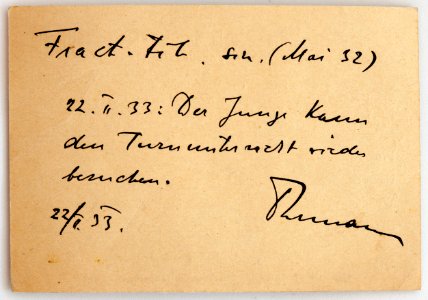 Fract. Tib. sin. (Mai 32)
22. II. 33: Der Junge kann
den Turnunterricht wieder
besuchen.
22/II 33.